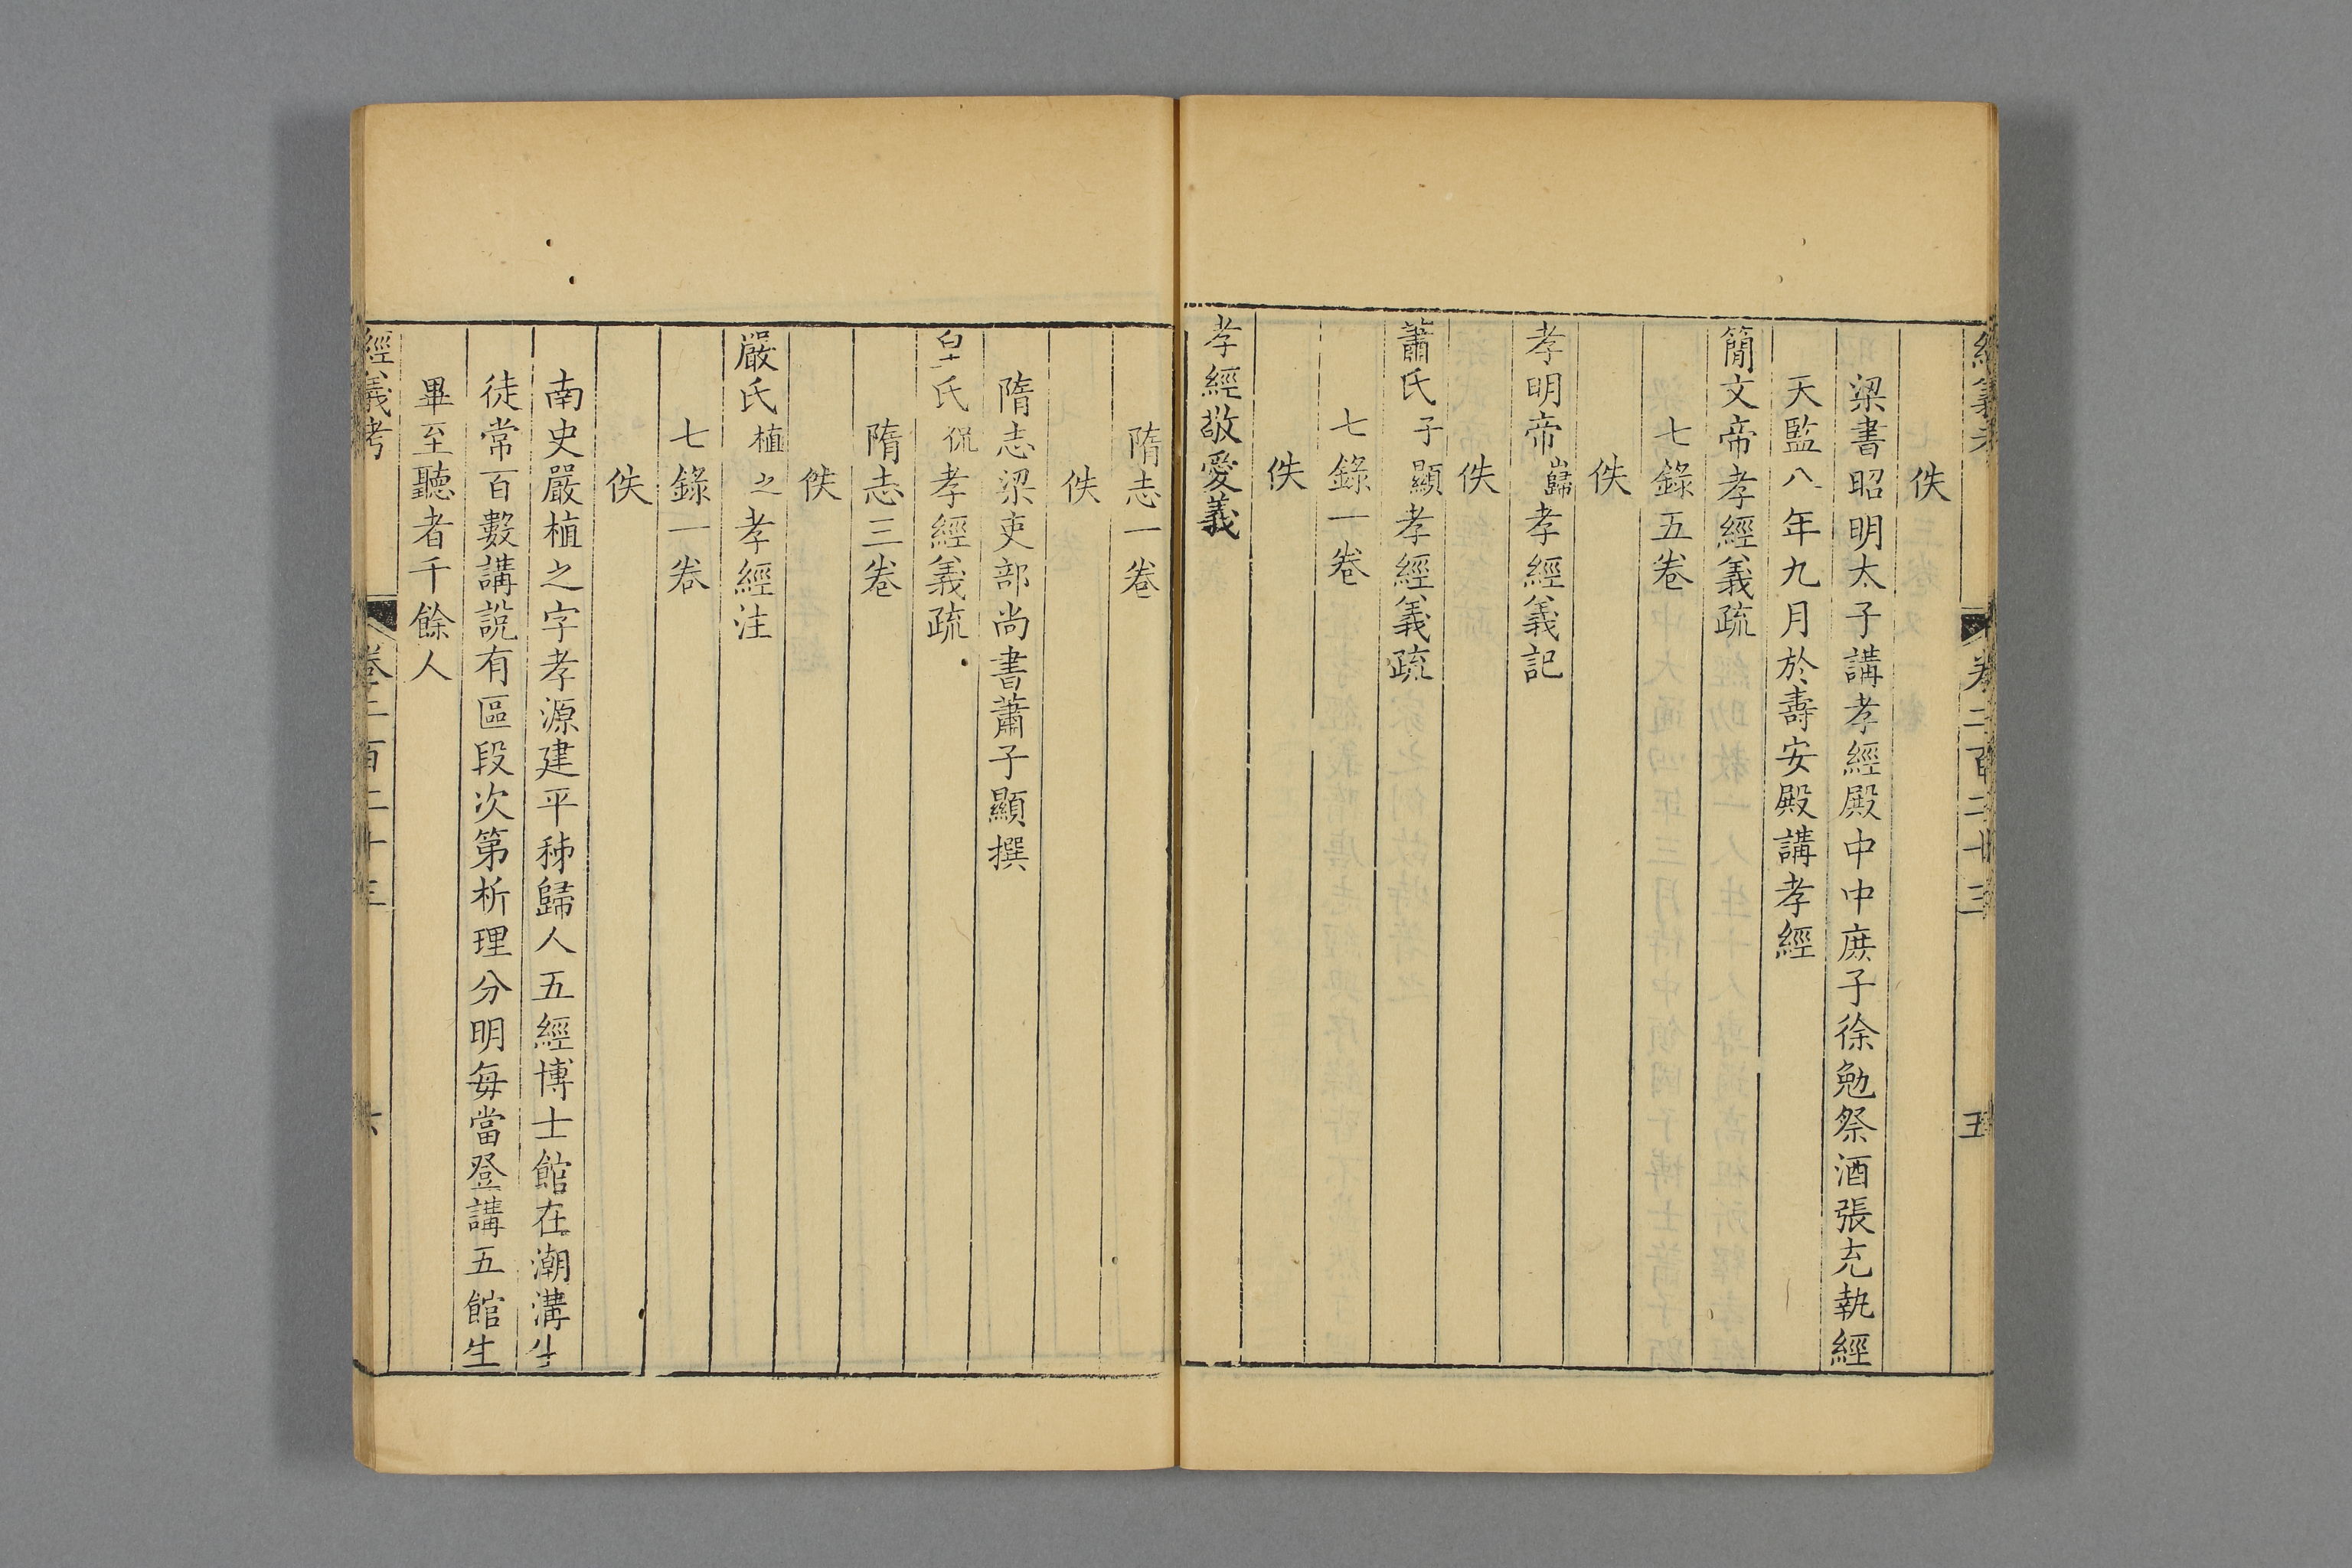 經義考 卷二百二十三 五
佚
梁書昭明太子講孝經殿中中庶子徐勉祭酒張充執經
天監八年九月於壽安殿講孝經
簡文帝孝經義疏
七錄五卷
佚
孝明帝巋孝經義記
佚
蕭氏子顯孝經義疏
七錄一卷
佚
孝經敬愛義
隋志一卷
佚
隋志梁吏部尚書蕭子顯撰
皇氏侃孝經義疏
隋志三卷
佚
嚴氏植之孝經注
七錄一卷
佚
南史嚴植之字孝源建平秭歸人五經博士館在潮溝生
徒常百數講說有區段次第析理分明每當登講五館生
畢至聽者千餘人
經義考 卷二百二十三 六